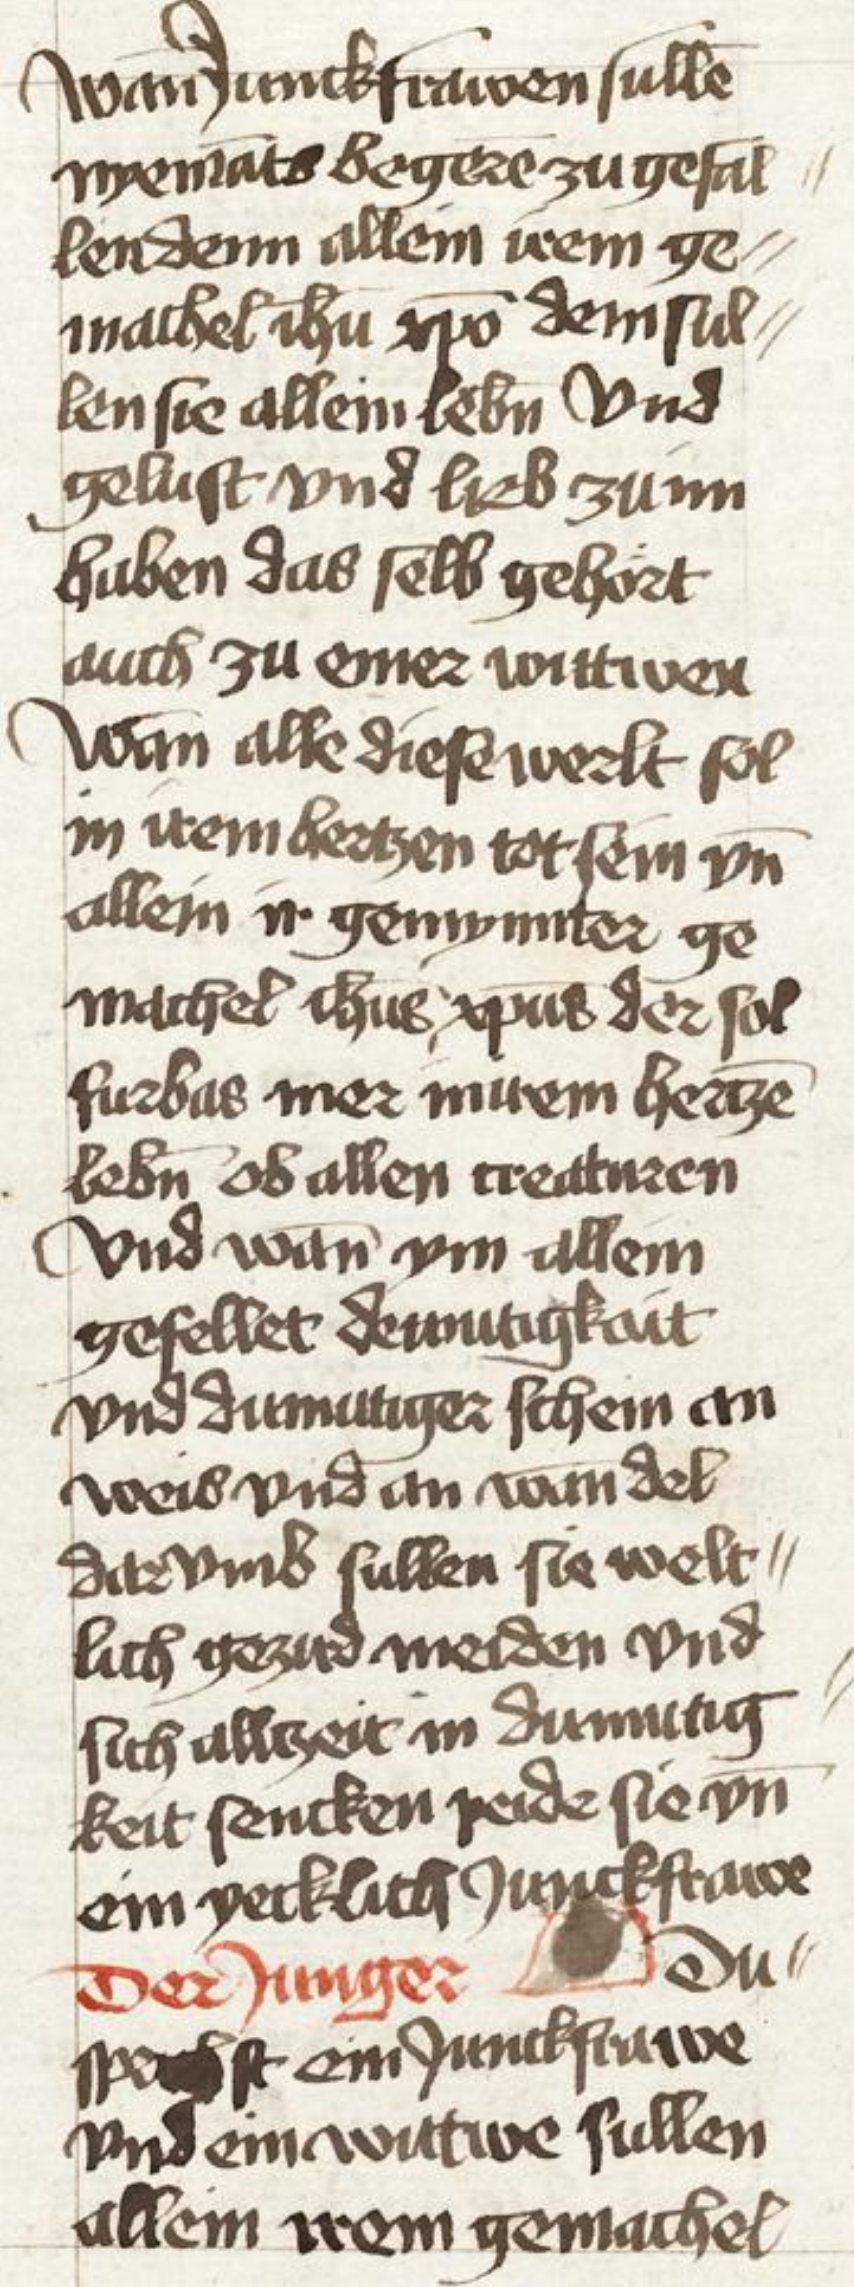 Wan̄ Junckfrawen sullē
nyemāts begerē zu gefal〃
len denn allein irem ge〃
machel ih̄u xp̄o dem sul〃
len sie allein lebn̄ Vnd
gelust vnd lieb zu im
haben das selb gehört
auch zu einer wittwen
Wan alle diese werlt sol
in irem hertzen tot sein vn̄
allein ir gemynnter ge
machel ih̄us xp̄us der sol
furbas mer in irem hertzē
lebn̄ ob allen creaturen
Vnd wan̄ ym allein
gefellet demutigkait
vnd diemutiger schein an
weis vnd an wandel
dar vmb sullen sie welt〃
lich gezird meiden vnd
sich alltzeit in diemutig〃
keit sencken peide sie vn̄
ein yecklich Junckfrawe
Der Junger Du〃
sprichst ein Junckfrawe
vnd ein wittwe sullen
allein irem gemachel